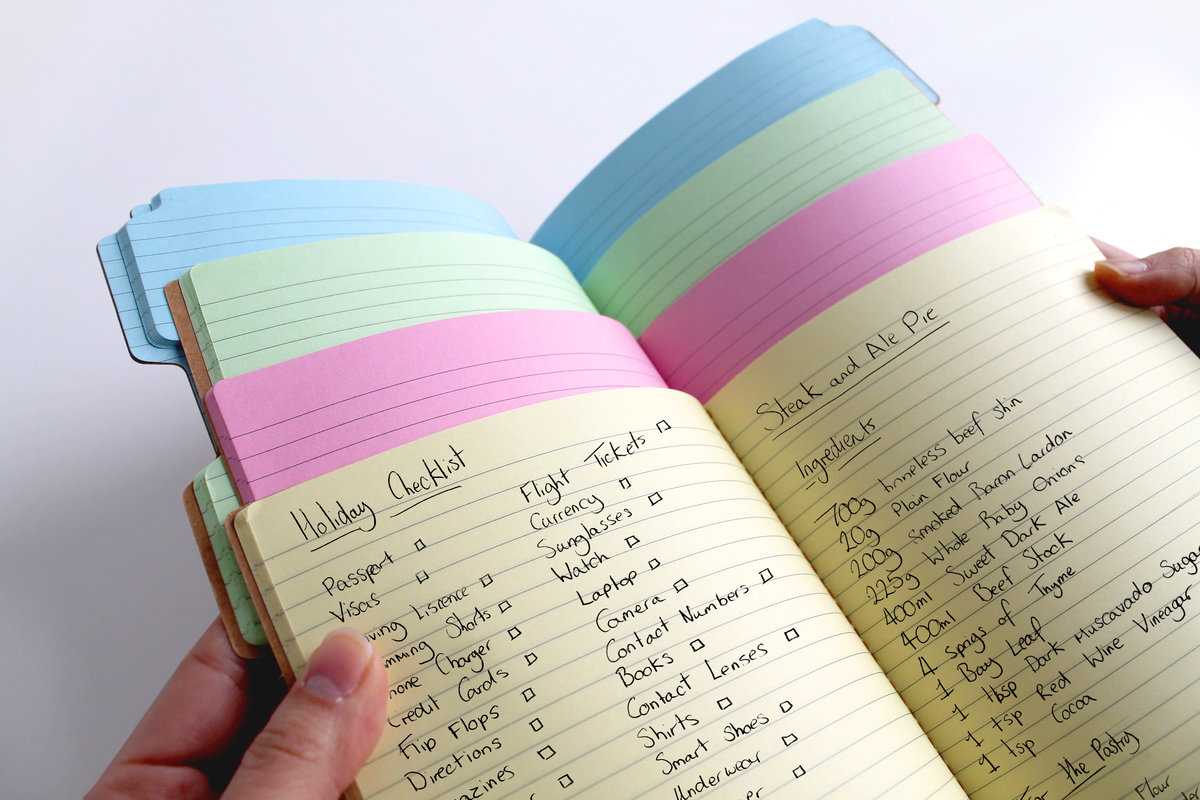 Holiday Checklist
Passport
Visas
Liscence
Shorts
Charger
Credit Cards
Flip Flops
Directions
Flight Tickets
Currency
Sunglasses
Watch
Laptop
Camera
Contact Numbers
Books
Contact Lenses
Shirts
Smart Shoes
Underwear
Steak and Ale Pie
Ingredients
700g boneless beef shin
20g Plain Flour
200g smoked Bacon Lardon
225g Whole Baby Onions
400ml Sweet Dark Ale
400ml Beef Stock
4 Sprigs of Thyme
1 Bay Leaf
1 tbsp Dark Muscavado Sugar
1 tsp Red Wine Vineagar
1 tsp Cocoa
For the Pastry
Flour